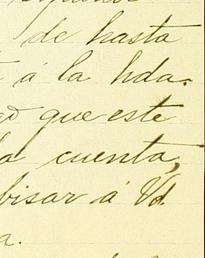 de hasta
á la hda.
que este
cuenta,
bisar á Vd.